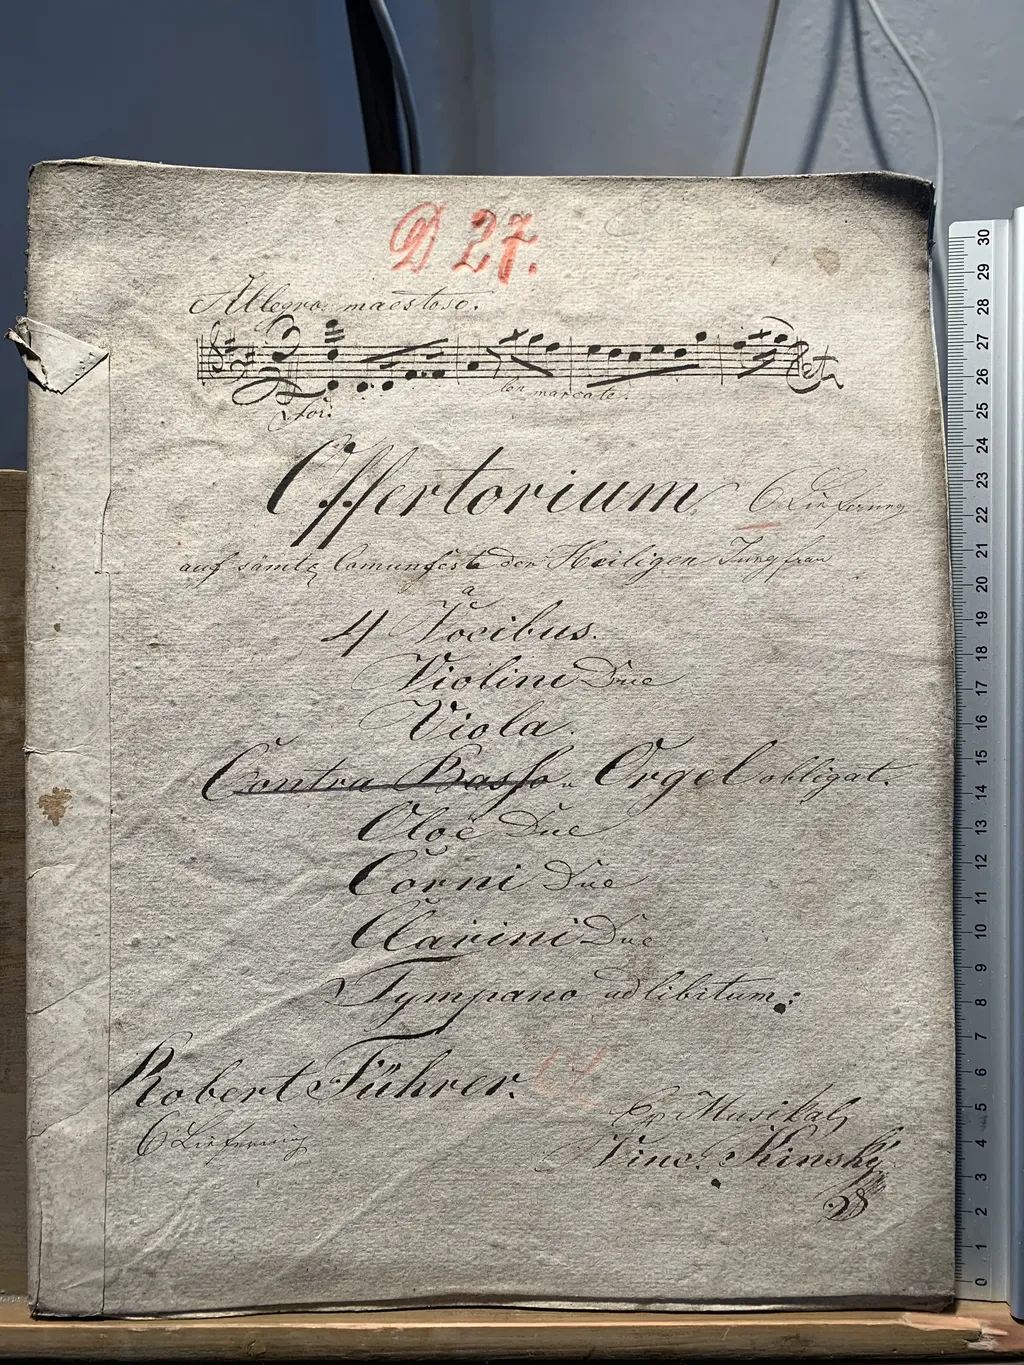 D 27.
Allegro maestoso.
for:
ten marcato.
etc
Offertorium 6 Lieferung
auf sämtẹ Comunfeste der Heiligen Jungfrau
a
4 Vocibus.
Violini Due
Viola.
Contra Basso u Orgel obligat.
Oboe Due
Corni Due
Clarini Due
Tympano ad libitum:
Robert Führer.
6 Lieferung
Ex Musikal:
Vinc. Kinský
30
29
28
27
26
25
24
23
22
21
20
19
18
17
16
15
14
13
12
11
10
9
8
7
6
5
4
3
2
1
0